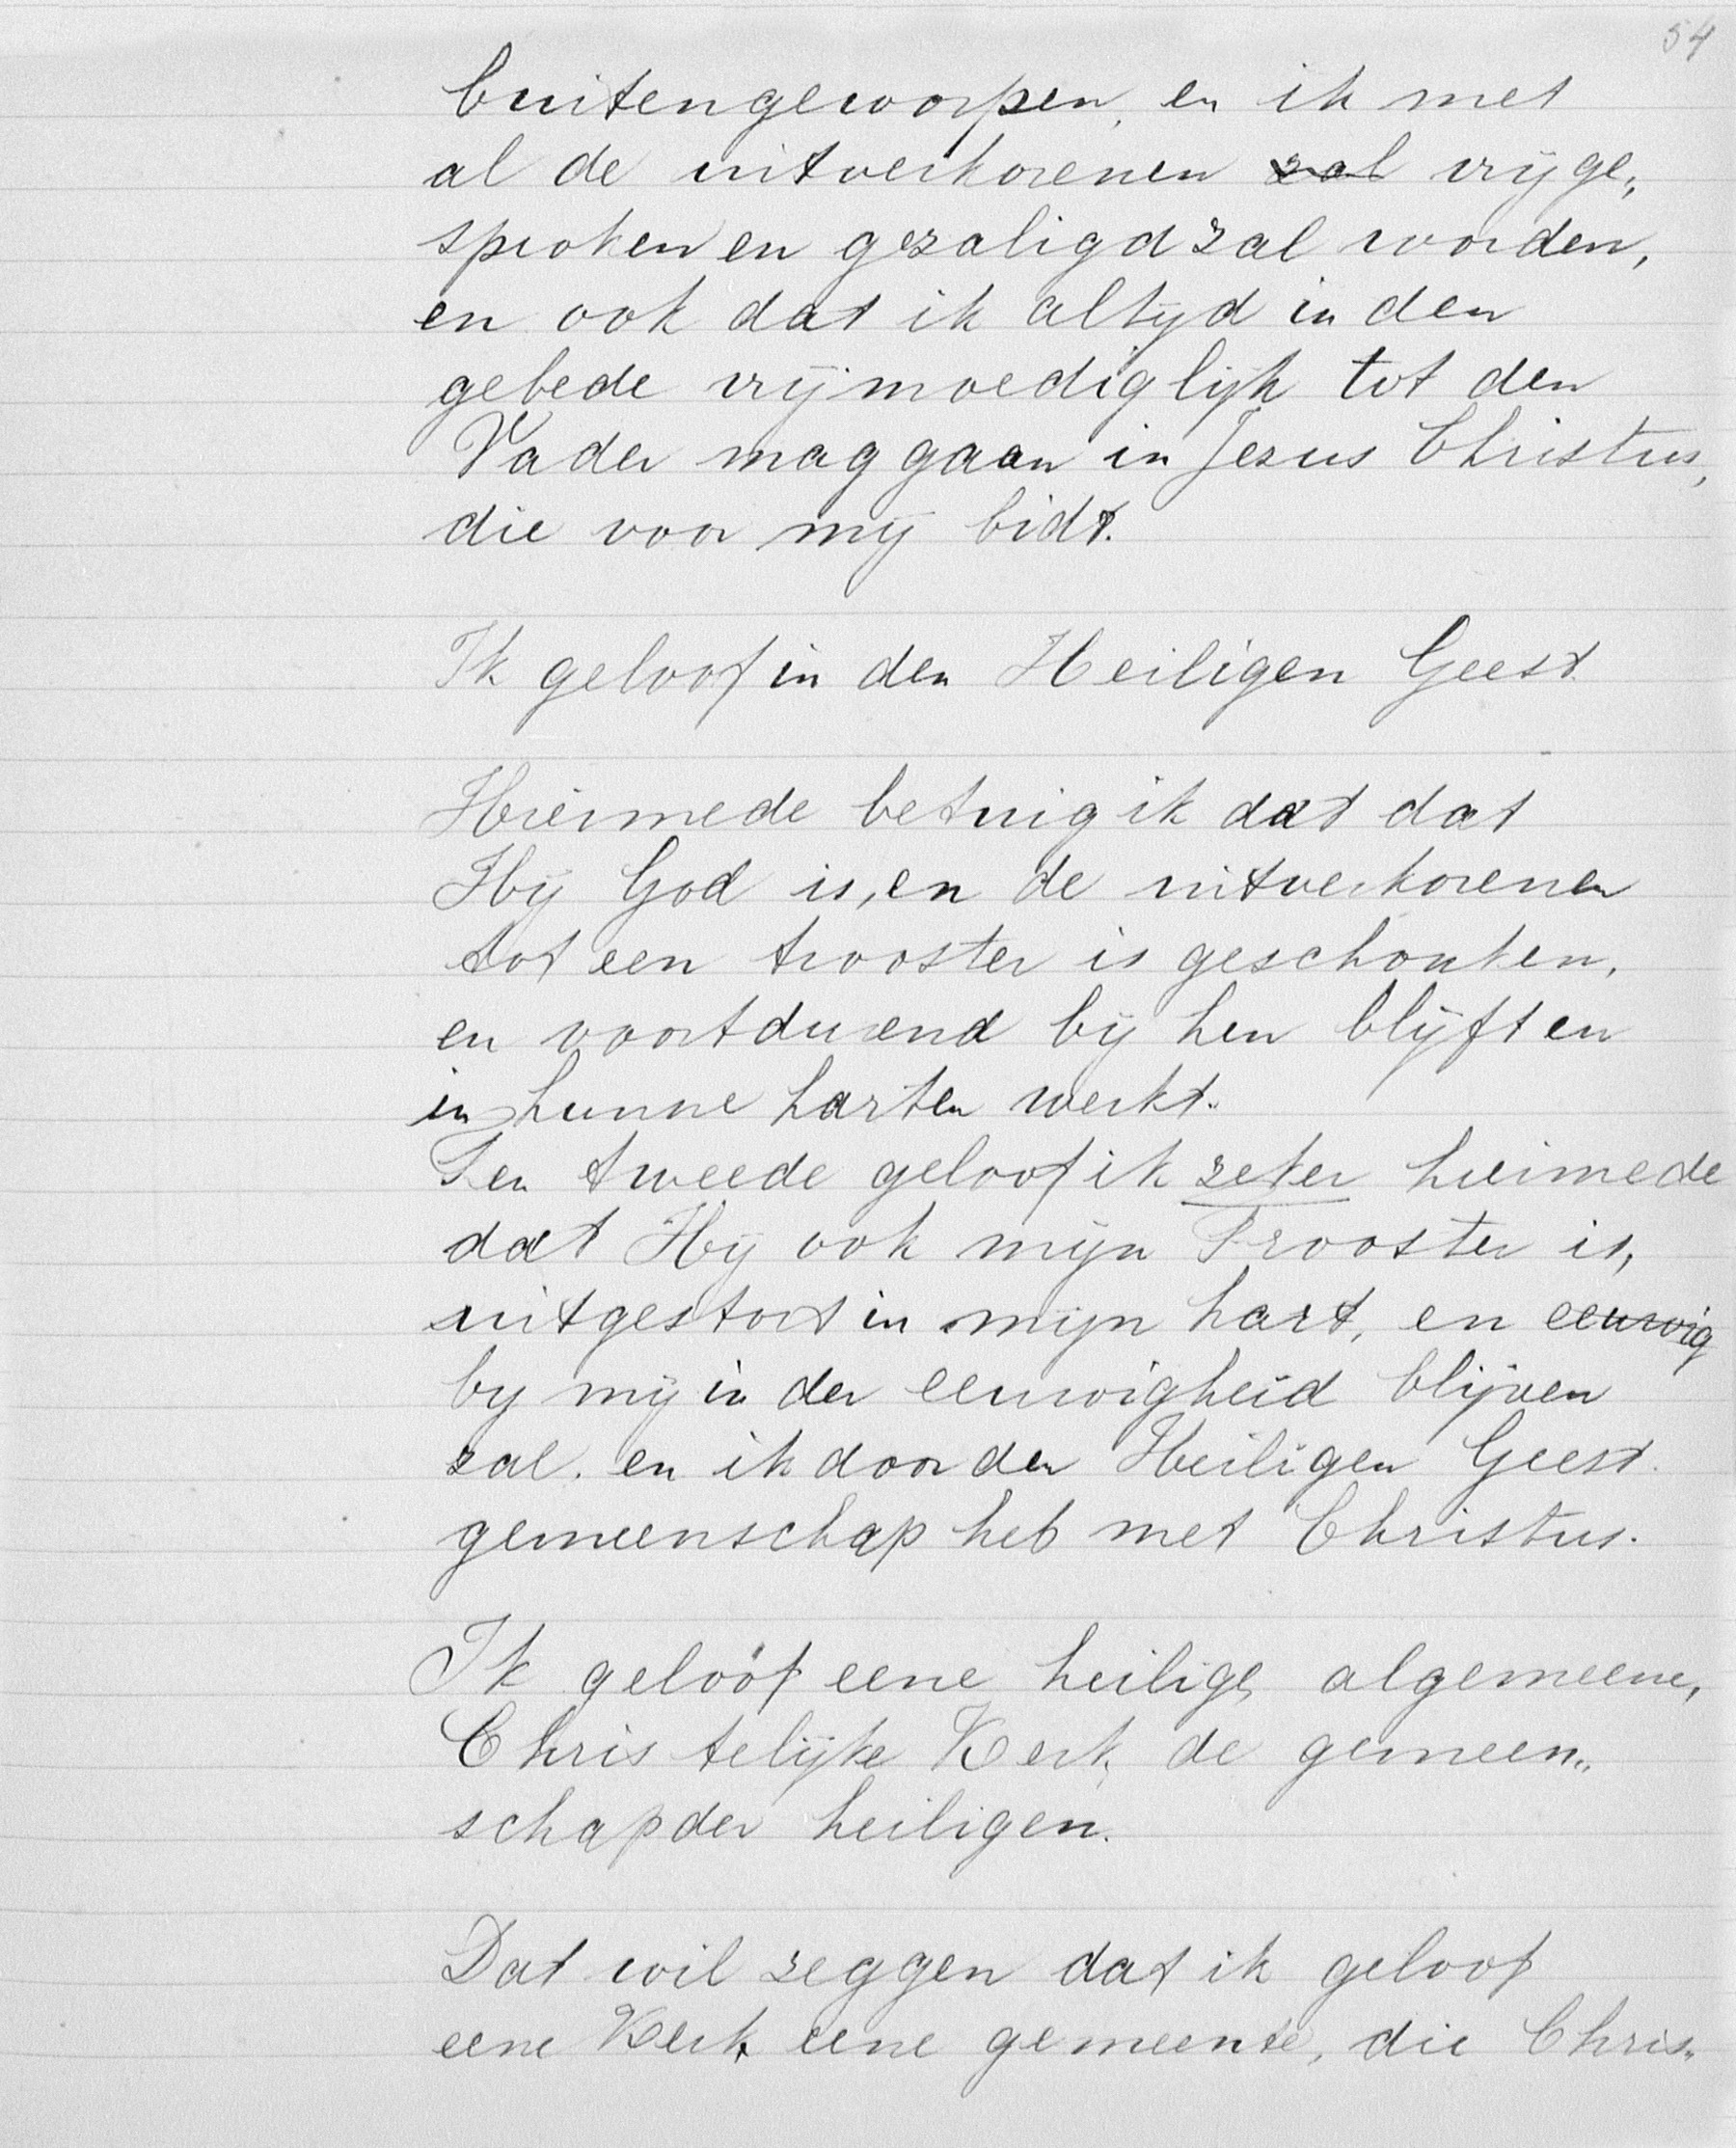 54
buitengeworpen, en ik met
al de uitverkorenen ~~zal~~ vrijge„
sproken en gezaligd zal worden,
en ook dat ik altijd in den
gebede vrijmoediglijk tot den
Vader mag gaan in Jezus Christus,
die voor mij bidt.
Ik geloof in den Heiligen Geest
Hiermede betuig ik dat dat
Hij God is, en de uitverkorenen
tot een trooster is geschonken,
en voortdurend bij hen blijft en
in hunne harten werkt.
Ten tweede geloof ik zeker hiermede
dat Hij ook mijn Trooster is,
uitgestort in mijn hart, en ~~eeuwig~~
by mij in der eeuwigheid blijven
zal. en ik door den Heiligen Geest
gemeenschap heb met Christus.
Ik geloof eene heilige, algemeene,
Christelijke Kerk, de gemeen„
schap der heiligen.
Dat wil zeggen dat ik geloof
eene Kerk, eene gemeente, die Chris„